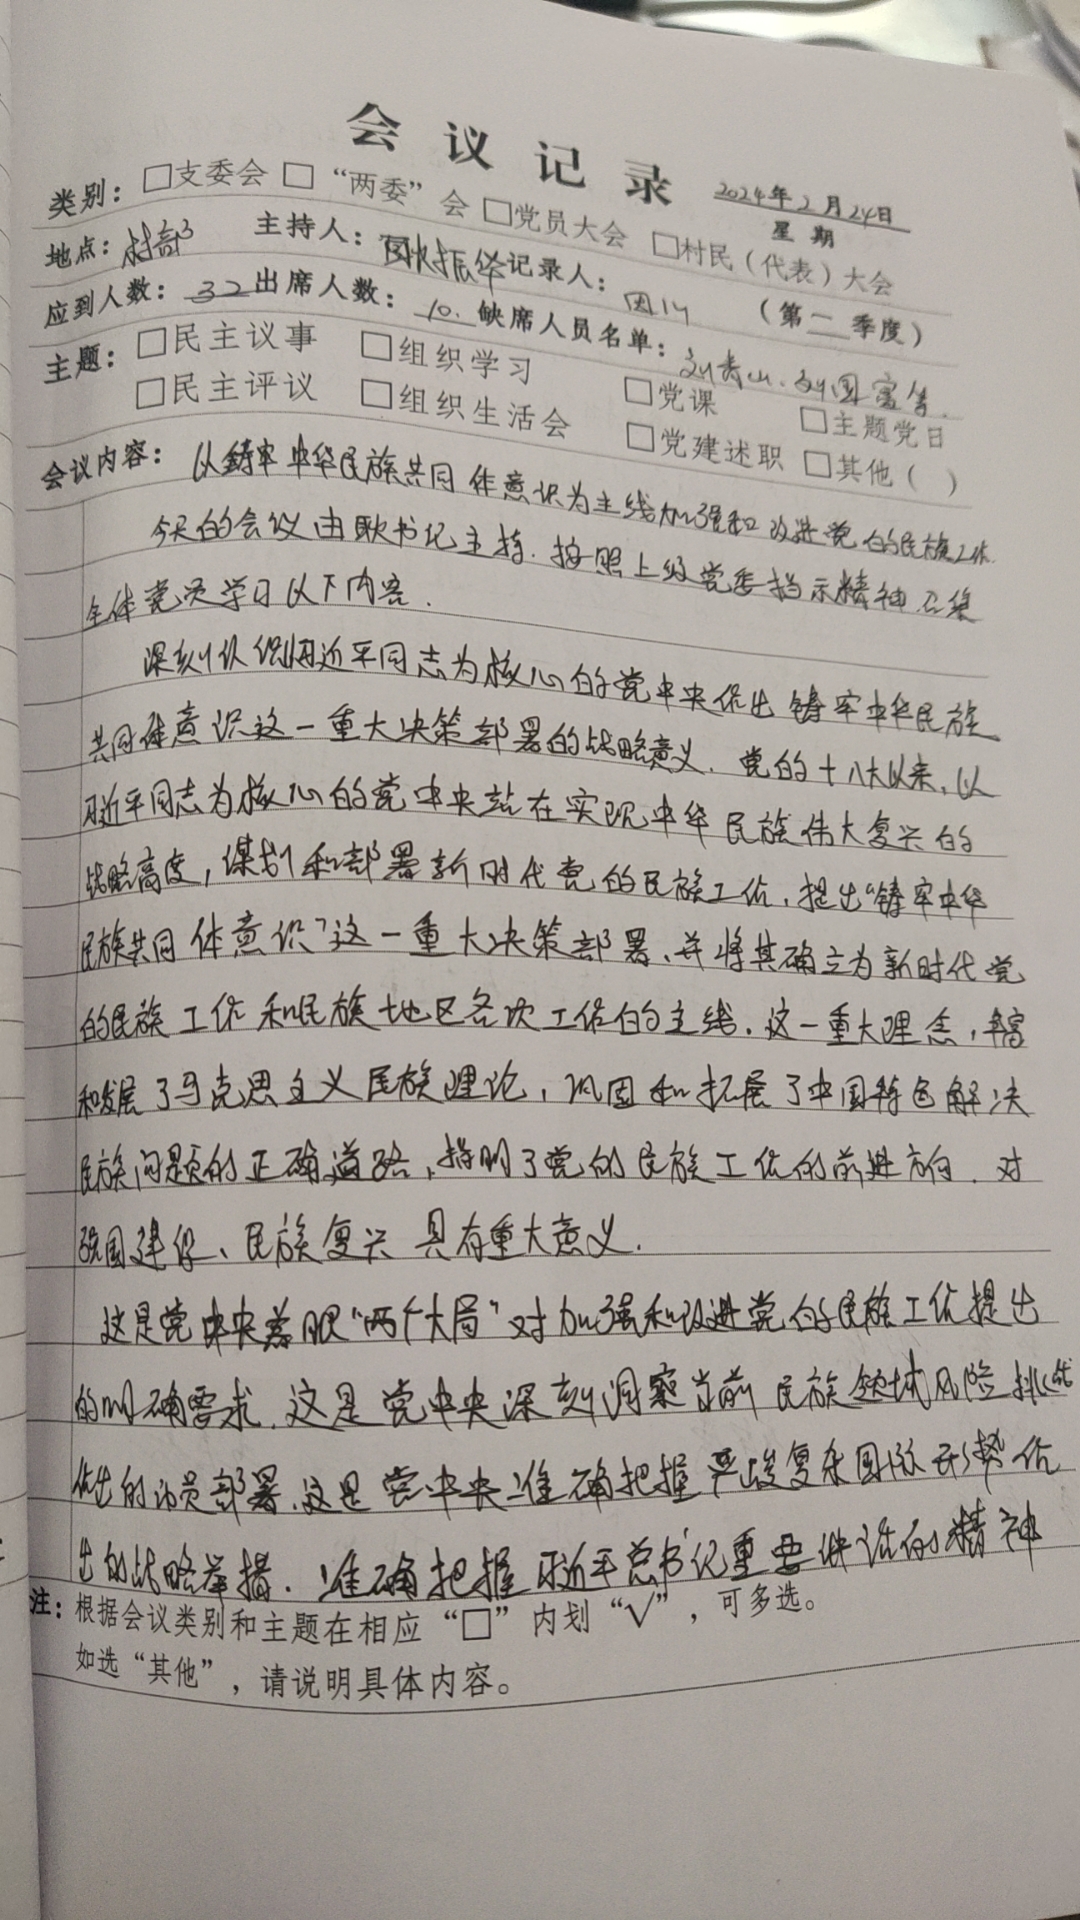 会议记录
2024年2月24日
星期
类别：□支委会 □“两委”会 □党员大会 □村民（代表）大会
地点：村部 主持人：耿振华 记录人： （第二季度）
应到人数：32 出席人数：10. 缺席人员名单：刘青山、刘国富等.
主题：□民主议事 □组织学习 □党课 □主题党日
□民主评议 □组织生活会 □党建述职 □其他（ ）
会议内容：以铸牢中华民族共同体意识为主线加强和改进党的民族工作.
今天的会议由耿书记主持.按照上级党委指示精神召集
全体党员学习以下内容.
深刻认识习近平同志为核心的党中央作出铸牢中华民族
共同体意识这一重大决策部署的战略意义.党的十八大以来,以
习近平同志为核心的党中央站在实现中华民族伟大复兴的
战略高度,谋划和部署新时代党的民族工作,提出“铸牢中华
民族共同体意识”这一重大决策部署、并将其确立为新时代党
的民族工作和民族地区各次工作的主线.这一重大理念,丰富
和发展了马克思主义民族理论,巩固和拓展了中国特色解决
民族问题的正确道路,指明了党的民族工作的前进方向.对
强国建设、民族复兴具有重大意义.
这是党中央着眼“两个大局”对加强和改进党的民族工作提出
的明确需求.这是党中央深刻洞察当前民族领域风险挑战
作出的动员部署.这是党中央准确把握严峻复杂国际形势作
出的战略举措.准确把握习近平总书记重要讲话的精神
注：根据会议类别和主题在相应“□”内划“√”，可多选。
如选“其他”，请说明具体内容。